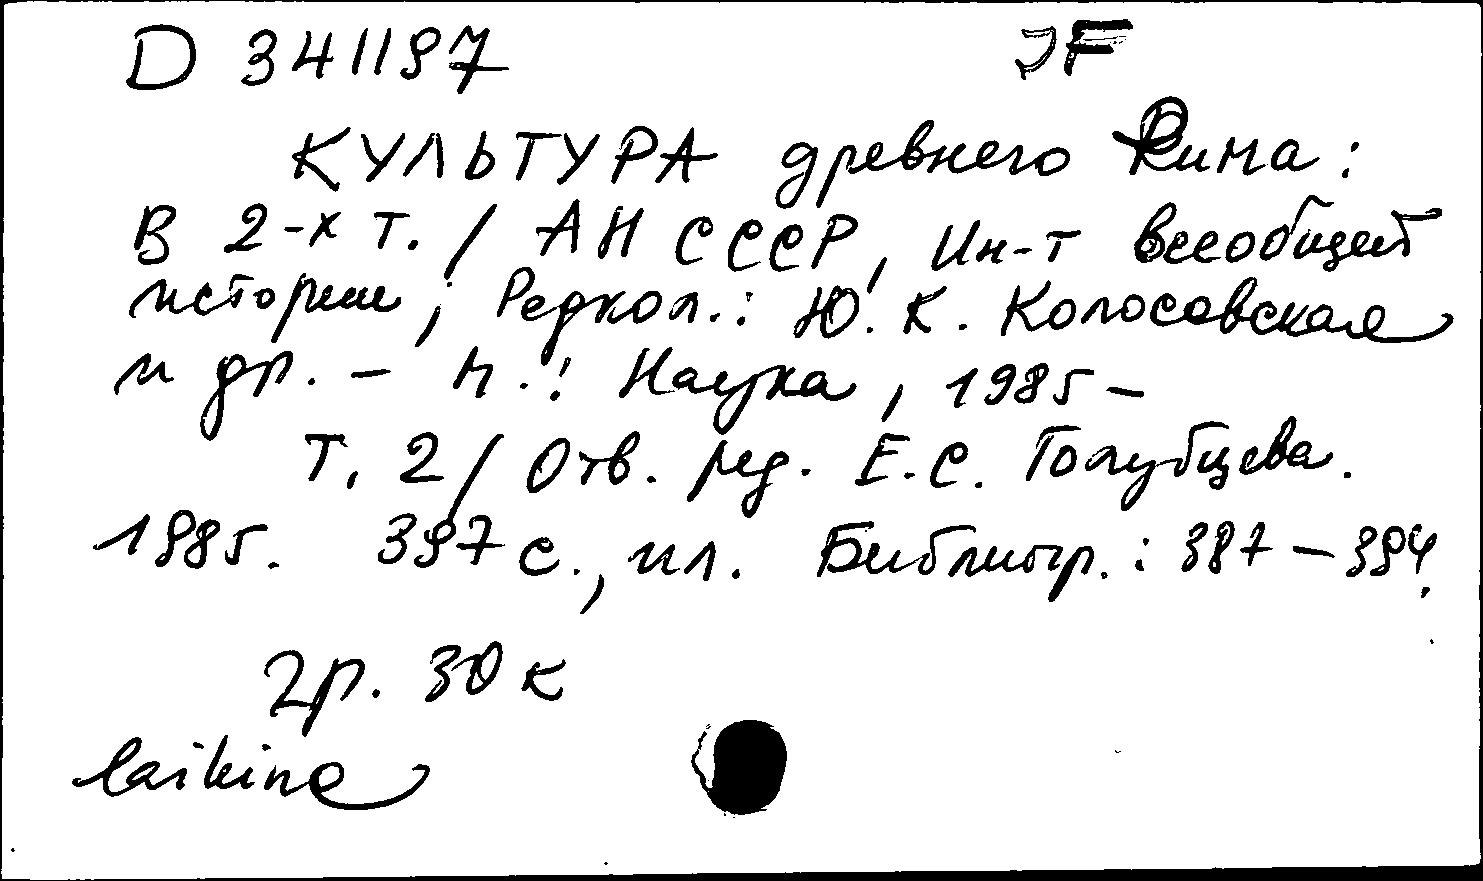 D 341197 JF
КУЛЬТУРА древнего Рима :
В 2-х т. / АН СССР, Ин-т всеобщей
истории ; Редкол.: Ю. К. Колосовская
и др. – М.: Наука, 1985 –
Т. 2 / Отв. ред. Е.С. Голубцева.
1985. 397 с., ил. Библиогр.: 387 – 394.
2р. 30 к
laikina